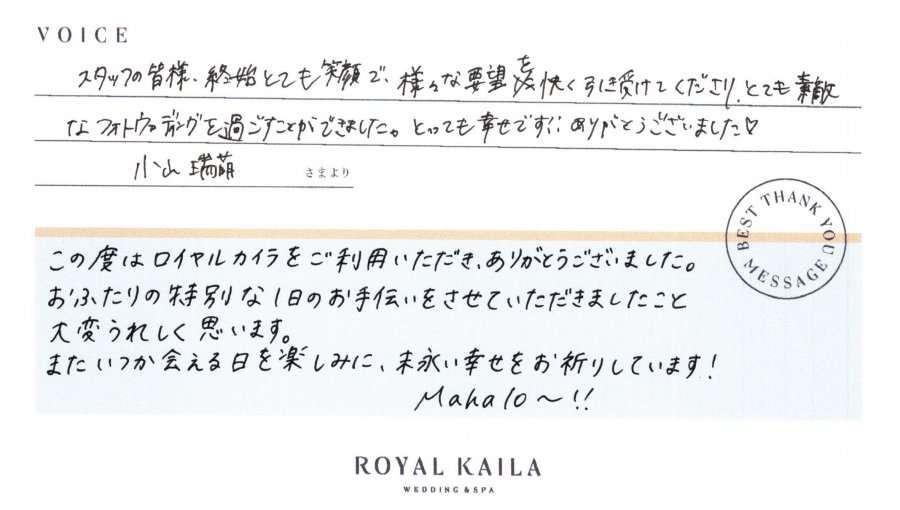 VOICE
スタッフの皆様、終始とても笑顔で、様々な要望を快く引き受けてくださり、とても素敵
なフォトウェディングを過ごすことができました。とっても幸せです!! ありがとうございました♡
小山 瑞萌 さまより
BEST THANK YOU MESSAGE
この度はロイヤルカイラをご利用いただき、ありがとうございました。
おふたりの特別な1日のお手伝いをさせていただきましたこと
大変うれしく思います。
またいつか会える日を楽しみに、末永い幸せをお祈りしています!
Mahalo〜!!
ROYAL KAILA
WEDDING & SPA